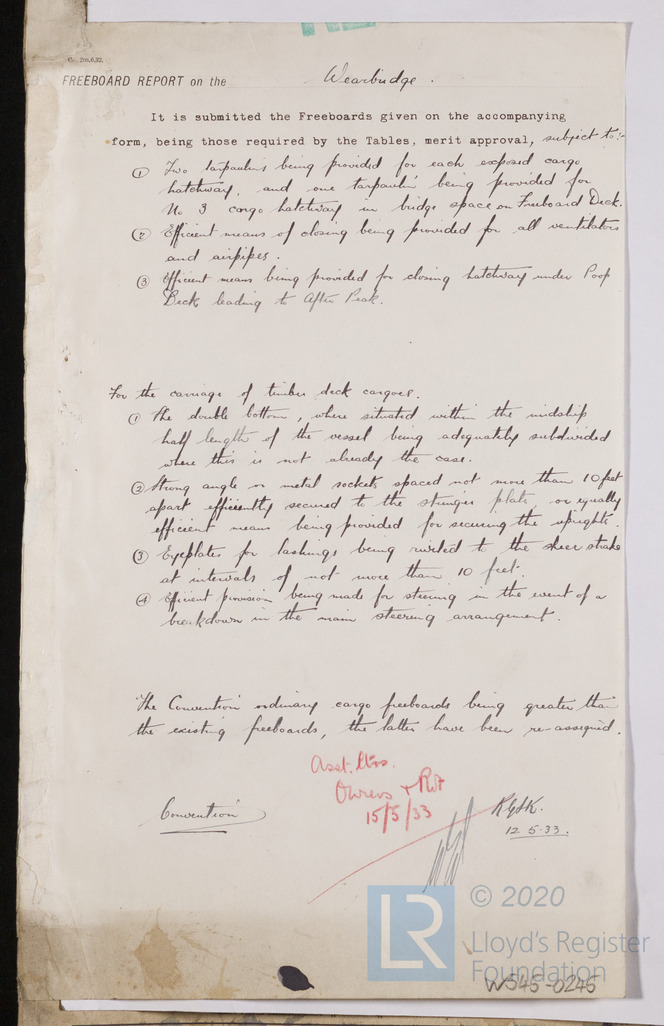 FREEBOARD REPORT on the Wearbridge.
It is submitted the Freeboards given on the accompanying
form, being those required by the Tables, merit approval, subject to:-
① Two tarpaulins being provided for each exposed cargo
hatchway, and one tarpaulin being provided for
No 3 cargo hatchway in bridge space on Freeboard Deck.
② Efficient means of closing being provided for all ventilators
and airpipes.
③ Efficient means being provided for closing hatchway under Poop
Deck leading to After Peak.
For the carriage of timber deck cargoes.
① The double bottom, where situated within the midship
half length of the vessel being adequately subdivided
where this is not already the case.
② Strong angle or metal sockets spaced not more than 10 feet
apart efficiently secured to the stringer plate, or equally
efficient means being provided for securing the uprights.
③ Eyeplates for lashings being riveted to the sheer strake
at intervals of not more than 10 feet.
④ Efficient provision being made for steering in the event of a
breakdown in the main steering arrangement.
The Convention ordinary cargo freeboards being greater than
the existing freeboards, the latter have been re-assigned.
Asst.
Owners +
15/5/33
Convention
12.5.33.
LR
© 2020
Lloyd's Register
Foundation
W545-0245